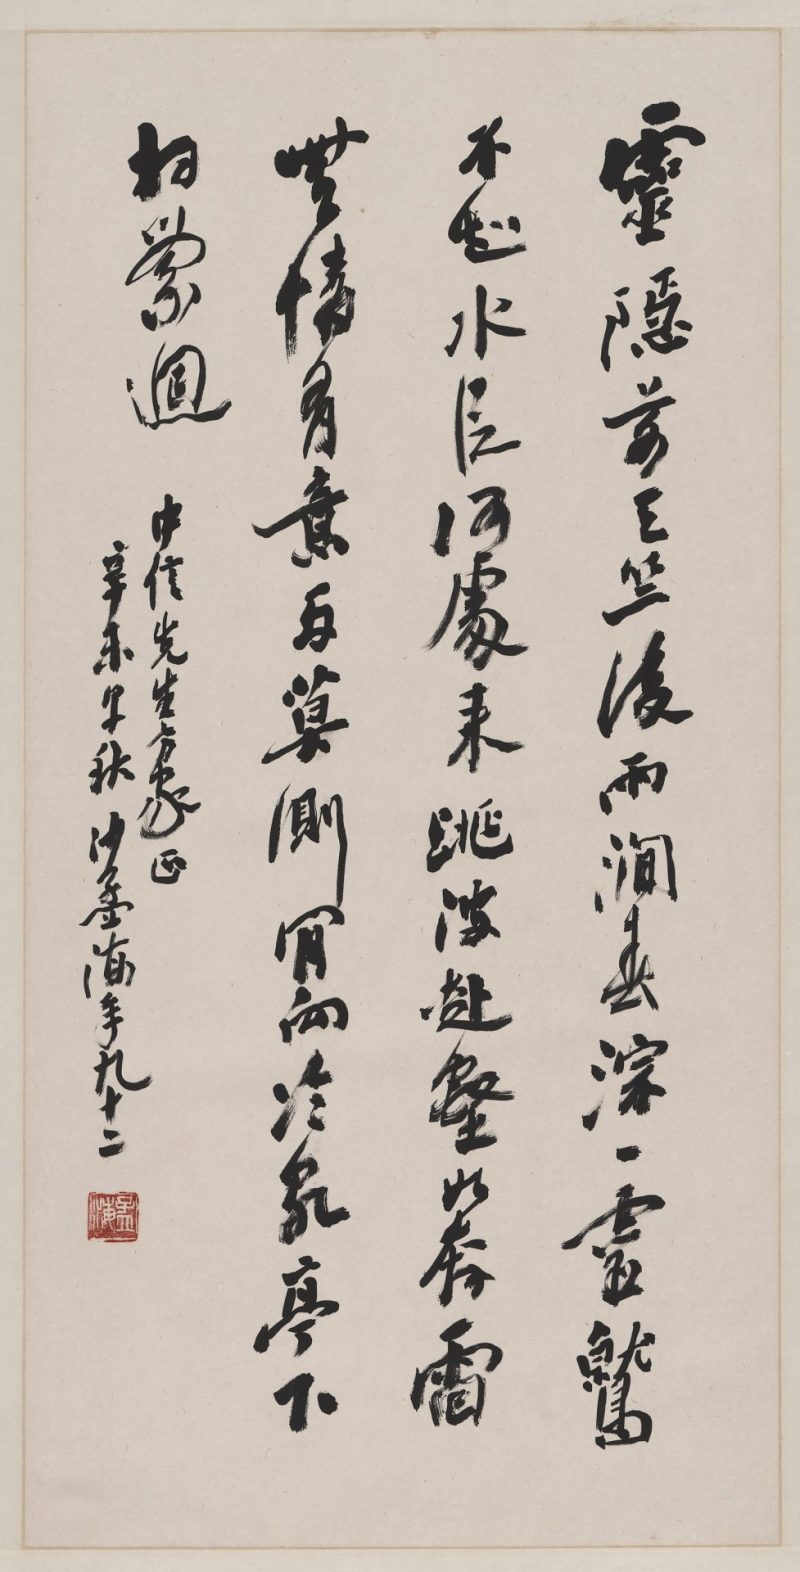 靈隱前天竺後兩澗春淙一靈鷲
不知水從何處來跳波赴壑如奔雷
無情有意兩莫測肯向冷泉亭下
相縈迴
中信先生方家正
辛未早秋沙孟海年九十二
孟海